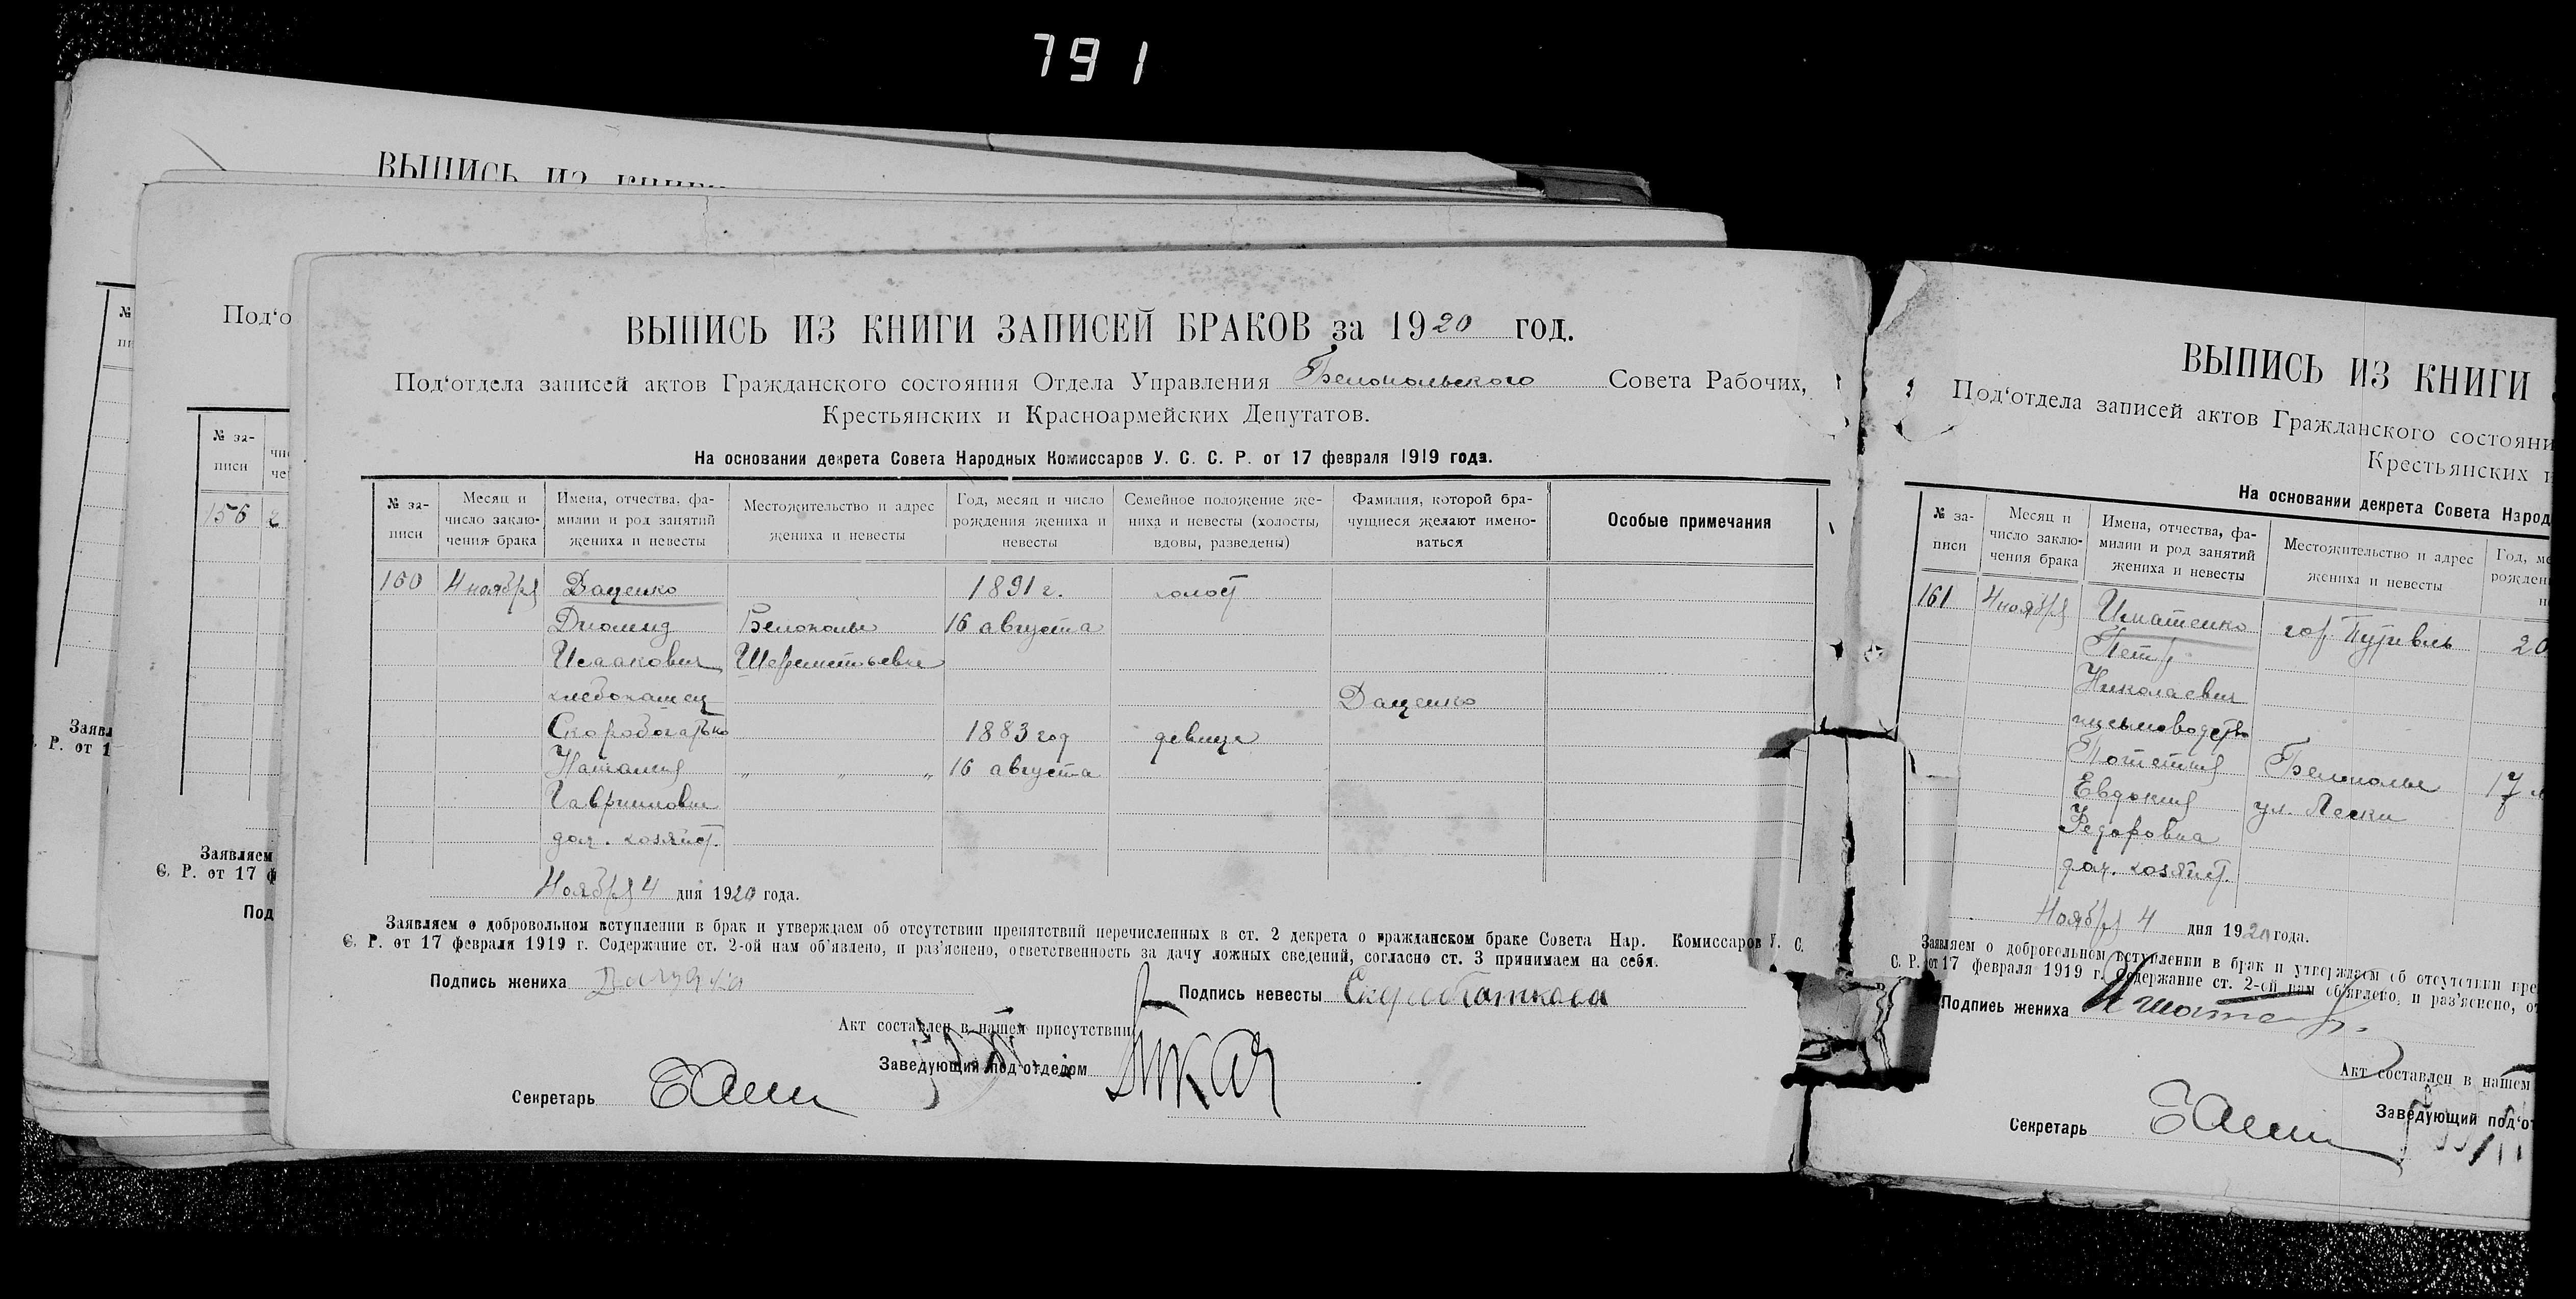 791
ВЫПИСЬ ИЗ КНИГИ
Под‘о
№ за-
писи
156
Заявл
Р. от 1
Заявляем
С. Р. от 17 ф
Под
ВЫПИСЬ ИЗ КНИГИ ЗАПИСЕЙ БРАКОВ за 1920 год.
Под‘отдела записей актов Гражданского состояния Отдела Управления Белопольского Совета Рабочих,
Крестьянских и Красноармейских Депутатов.
На основании декрета Совета Народных Комиссаров У. С. С. Р. от 17 февраля 1919 года.
№ за-
писи
Месяц и
число заклю-
чения брака
Имена, отчества, фа-
милии и род занятий
жениха и невесты
Местожительство и адрес
жениха и невесты
Год, месяц и число
рождения жениха и
невесты
Семейное положение же-
ниха и невесты (холосты,
вдовы, разведены)
Фамилия, которой бра-
чущиеся желают имено-
ваться
Особые примечания
160 4 ноября Даценко 1891 г. холост
Диомид Белополье 16 августа
Исаакович Шереметьевка
хлебопашец Даценко
Скоробогатько 1883 год девица
Наталия „ „ „ 16 августа
Гавриловна
дом. хозяйст.
Ноября 4 дня 1920 года.
Заявляем о добровольном вступлении в брак и утверждаем об отсутствии препятствий перечисленных в ст. 2 декрета о гражданском браке Совета Нар. Комиссаров У. С.
С. Р. от 17 февраля 1919 г. Содержание ст. 2-ой нам об‘явлено, и раз‘яснено, ответственность за дачу ложных сведений, согласно ст. 3 принимаем на себя.
Подпись жениха Даценко
Подпись невесты
Акт составлен в нашем присутствии
Заведующий под‘отделом
Секретарь
ВЫПИСЬ ИЗ КНИГИ
Под‘отдела записей актов Гражданского состояни
Крестьянских и
На основании декрета Совета Народ
№ за-
писи
Месяц и
число заклю-
чения брака
Имена, отчества, фа-
милии и род занятий
жениха и невесты
Местожительство и адрес
жениха и невесты
Год, ме
рожден
161 4 ноября Игнатенко гор. Путивль 20
Петр
Николаевич
письмоводств
Белополье 17
Евдокия ул. Пески
Федоровна
дом. хозяйст.
Ноября 4 дня 1920 года.
Заявляем о добровольном вступлении в брак и утверждаем об отсутствии пре
С. Р. от 17 февраля 1919 г. Содержание ст. 2-ой нам об‘явлено, и раз‘яснено, от
Подпись жениха
Акт составлен в нашем
Заведующий под‘от
Секретарь